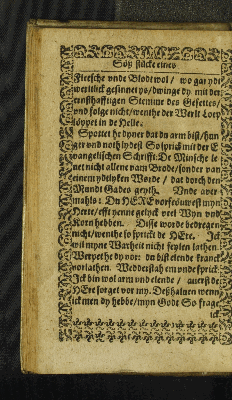 Söß stücke eines
Fleesche vnde Blode wol / wo gar ydt
wertlick gesinnet ys / dwinge dy mit der
ernsthafftigen Stemme des Gesettes /
vnd folge nicht / wenthe der Werlt Loep
löppet in de Helle.
Spottet he dyner dat du arm bist / hun
ger vnd noth lydest So sprick mit der E
uangelischen Schrifft: De Minsche le
uet nicht allene vam Brode / sonder van
einem ydelyken Worde / dat dorch den
Mundt Gades geyth. Vnde auer
mahls: Du HERE vorfröuwest myn
Herte / efft yenne gelyck veel Wyn vnd
Korn hebben. Disse worde bedregen
nicht / wenthe so sprickt de HEre. Ick
wil myne Warheit nicht feylen lathen
Werpet he dy vor: du bist elende kranck
vorlathen. Wedderstah em vnde sprick
Ick bin wol arm vnd elende / auerst de
HEre sorget vor my. Deßhaluen wenn
ick men dy hebbe / myn Godt So frage
ick